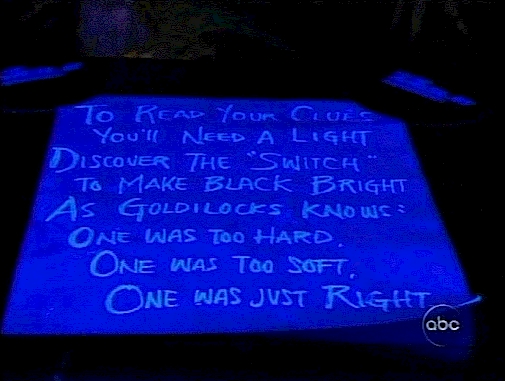 To Read Your Clues
You'll Need A Light
Discover The "Switch"
To Make Black Bright
As Goldilocks Knows:
One was too hard.
One was too soft,
One was just Right
abc